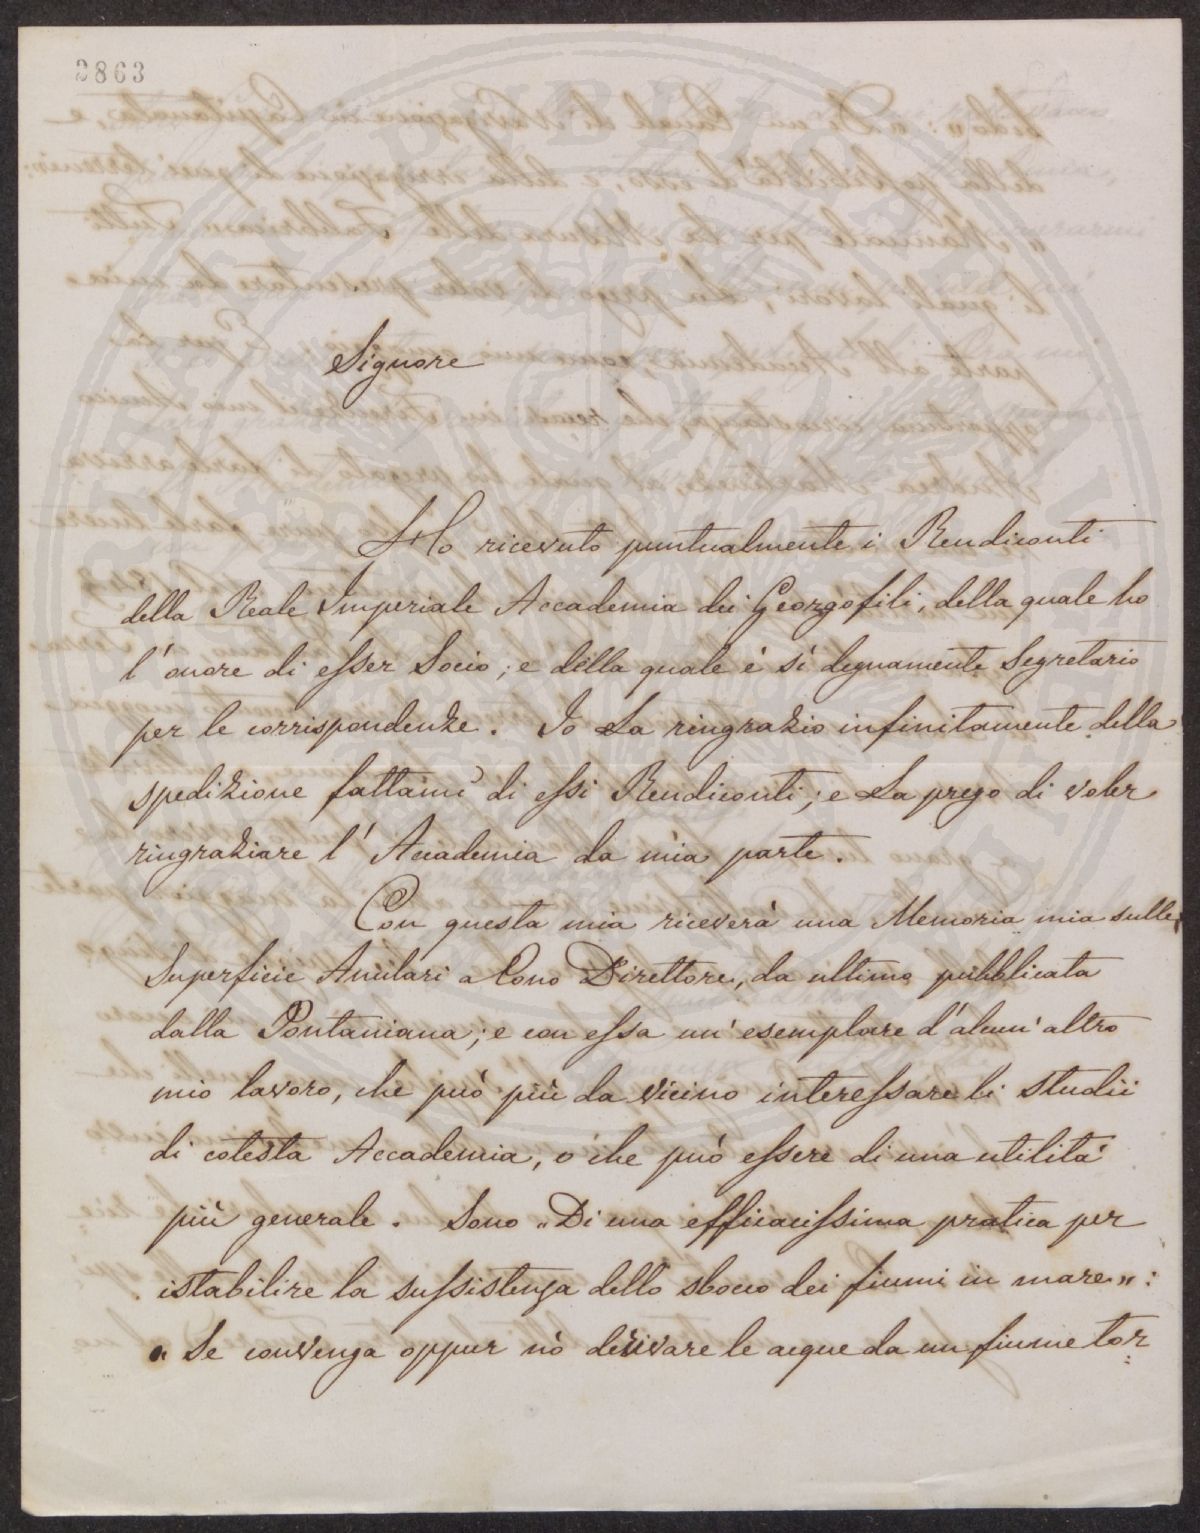 2863
Signore
Ho ricevuto puntualmente i Rendiconti
della Reale Imperiale Accademia dei Georgofili, della quale ho
l'onore di esser Socio; e della quale è sì degnamente Segretario
per le corrispondenze. Io La ringrazio infinitamente della
spedizione fattami di essi Rendiconti; e La prego di voler
ringraziare l'Accademia da mia parte.
Con questa mia riceverà una Memoria mia sulle
Superficie Anulari a Cono Direttore, da ultimo pubblicata
dalla Pontaniana; e con essa un'esemplare d'alcun'altro
mio lavoro, che può più da vicino interessare li studii
di cotesta Accademia, o che può essere di una utilità
più generale. Sono „Di una efficacissima pratica per
istabilire la sussistenza dello sbocco dei fiumi in mare":
„Se convenga oppur nò derivare le acque da un fiume tor=